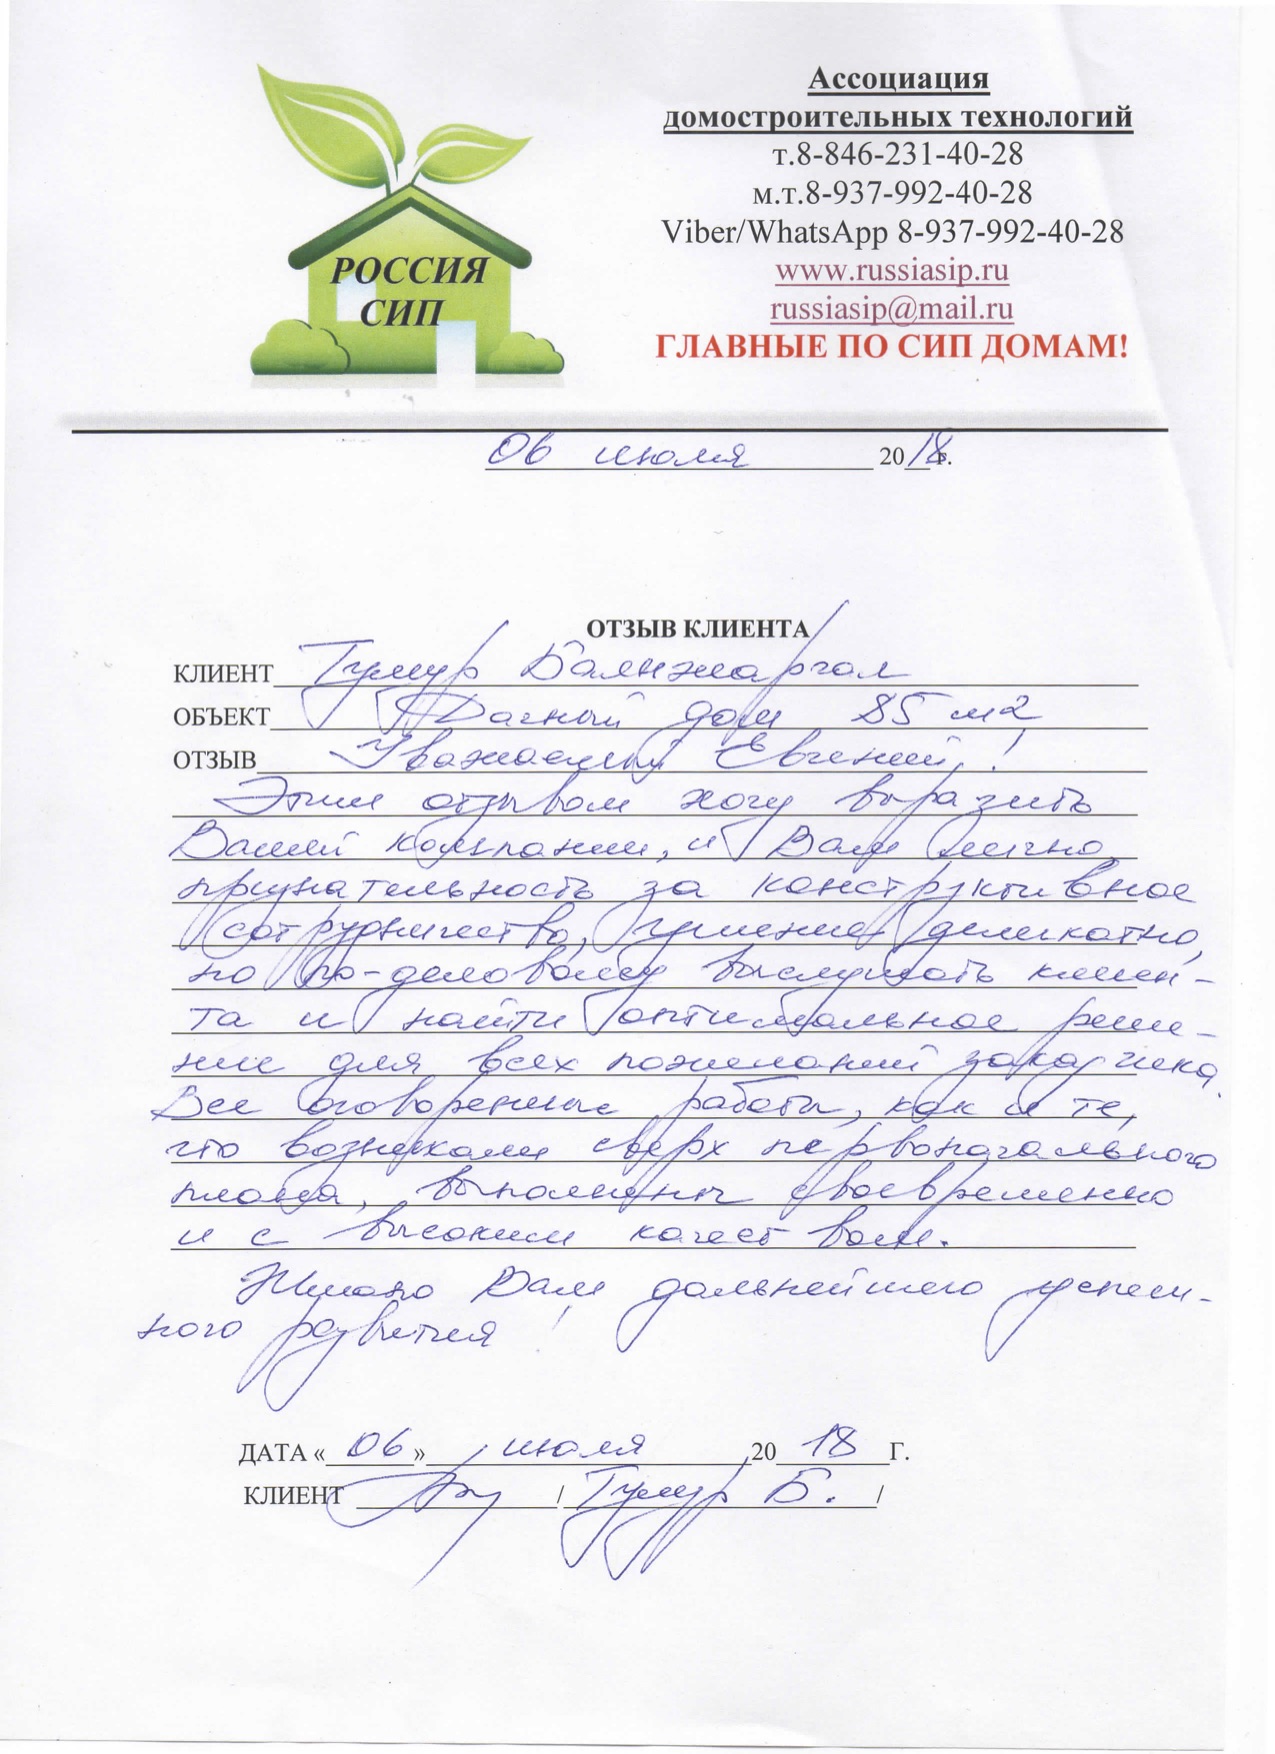 РОССИЯ
СИП
Ассоциация
домостроительных технологий
т.8-846-231-40-28
м.т.8-937-992-40-28
Viber/WhatsApp 8-937-992-40-28
www.russiasip.ru
russiasip@mail.ru
ГЛАВНЫЕ ПО СИП ДОМАМ!
06 июля 2018 г.
ОТЗЫВ КЛИЕНТА
КЛИЕНТ Тумур Баянжаргал
ОБЪЕКТ Дачный дом 85 м2
ОТЗЫВ Уважаемый Евгений!
Этим отзывом хочу выразить
Вашей компании, и Вам лично
признательность за конструктивное
сотрудничество, умение деликатно,
но по-деловому выслушать клиен-
та и найти оптимальное реше-
ние для всех пожеланий заказчика.
Все оговоренные работы, как и те,
что возникали сверх первоначального
плана, выполнены своевременно
и с высоким качеством.
Желаю Вам дальнейшего успеш-
ного развития!
ДАТА «06» июля 2018 Г.
КЛИЕНТ / Тумур Б. /